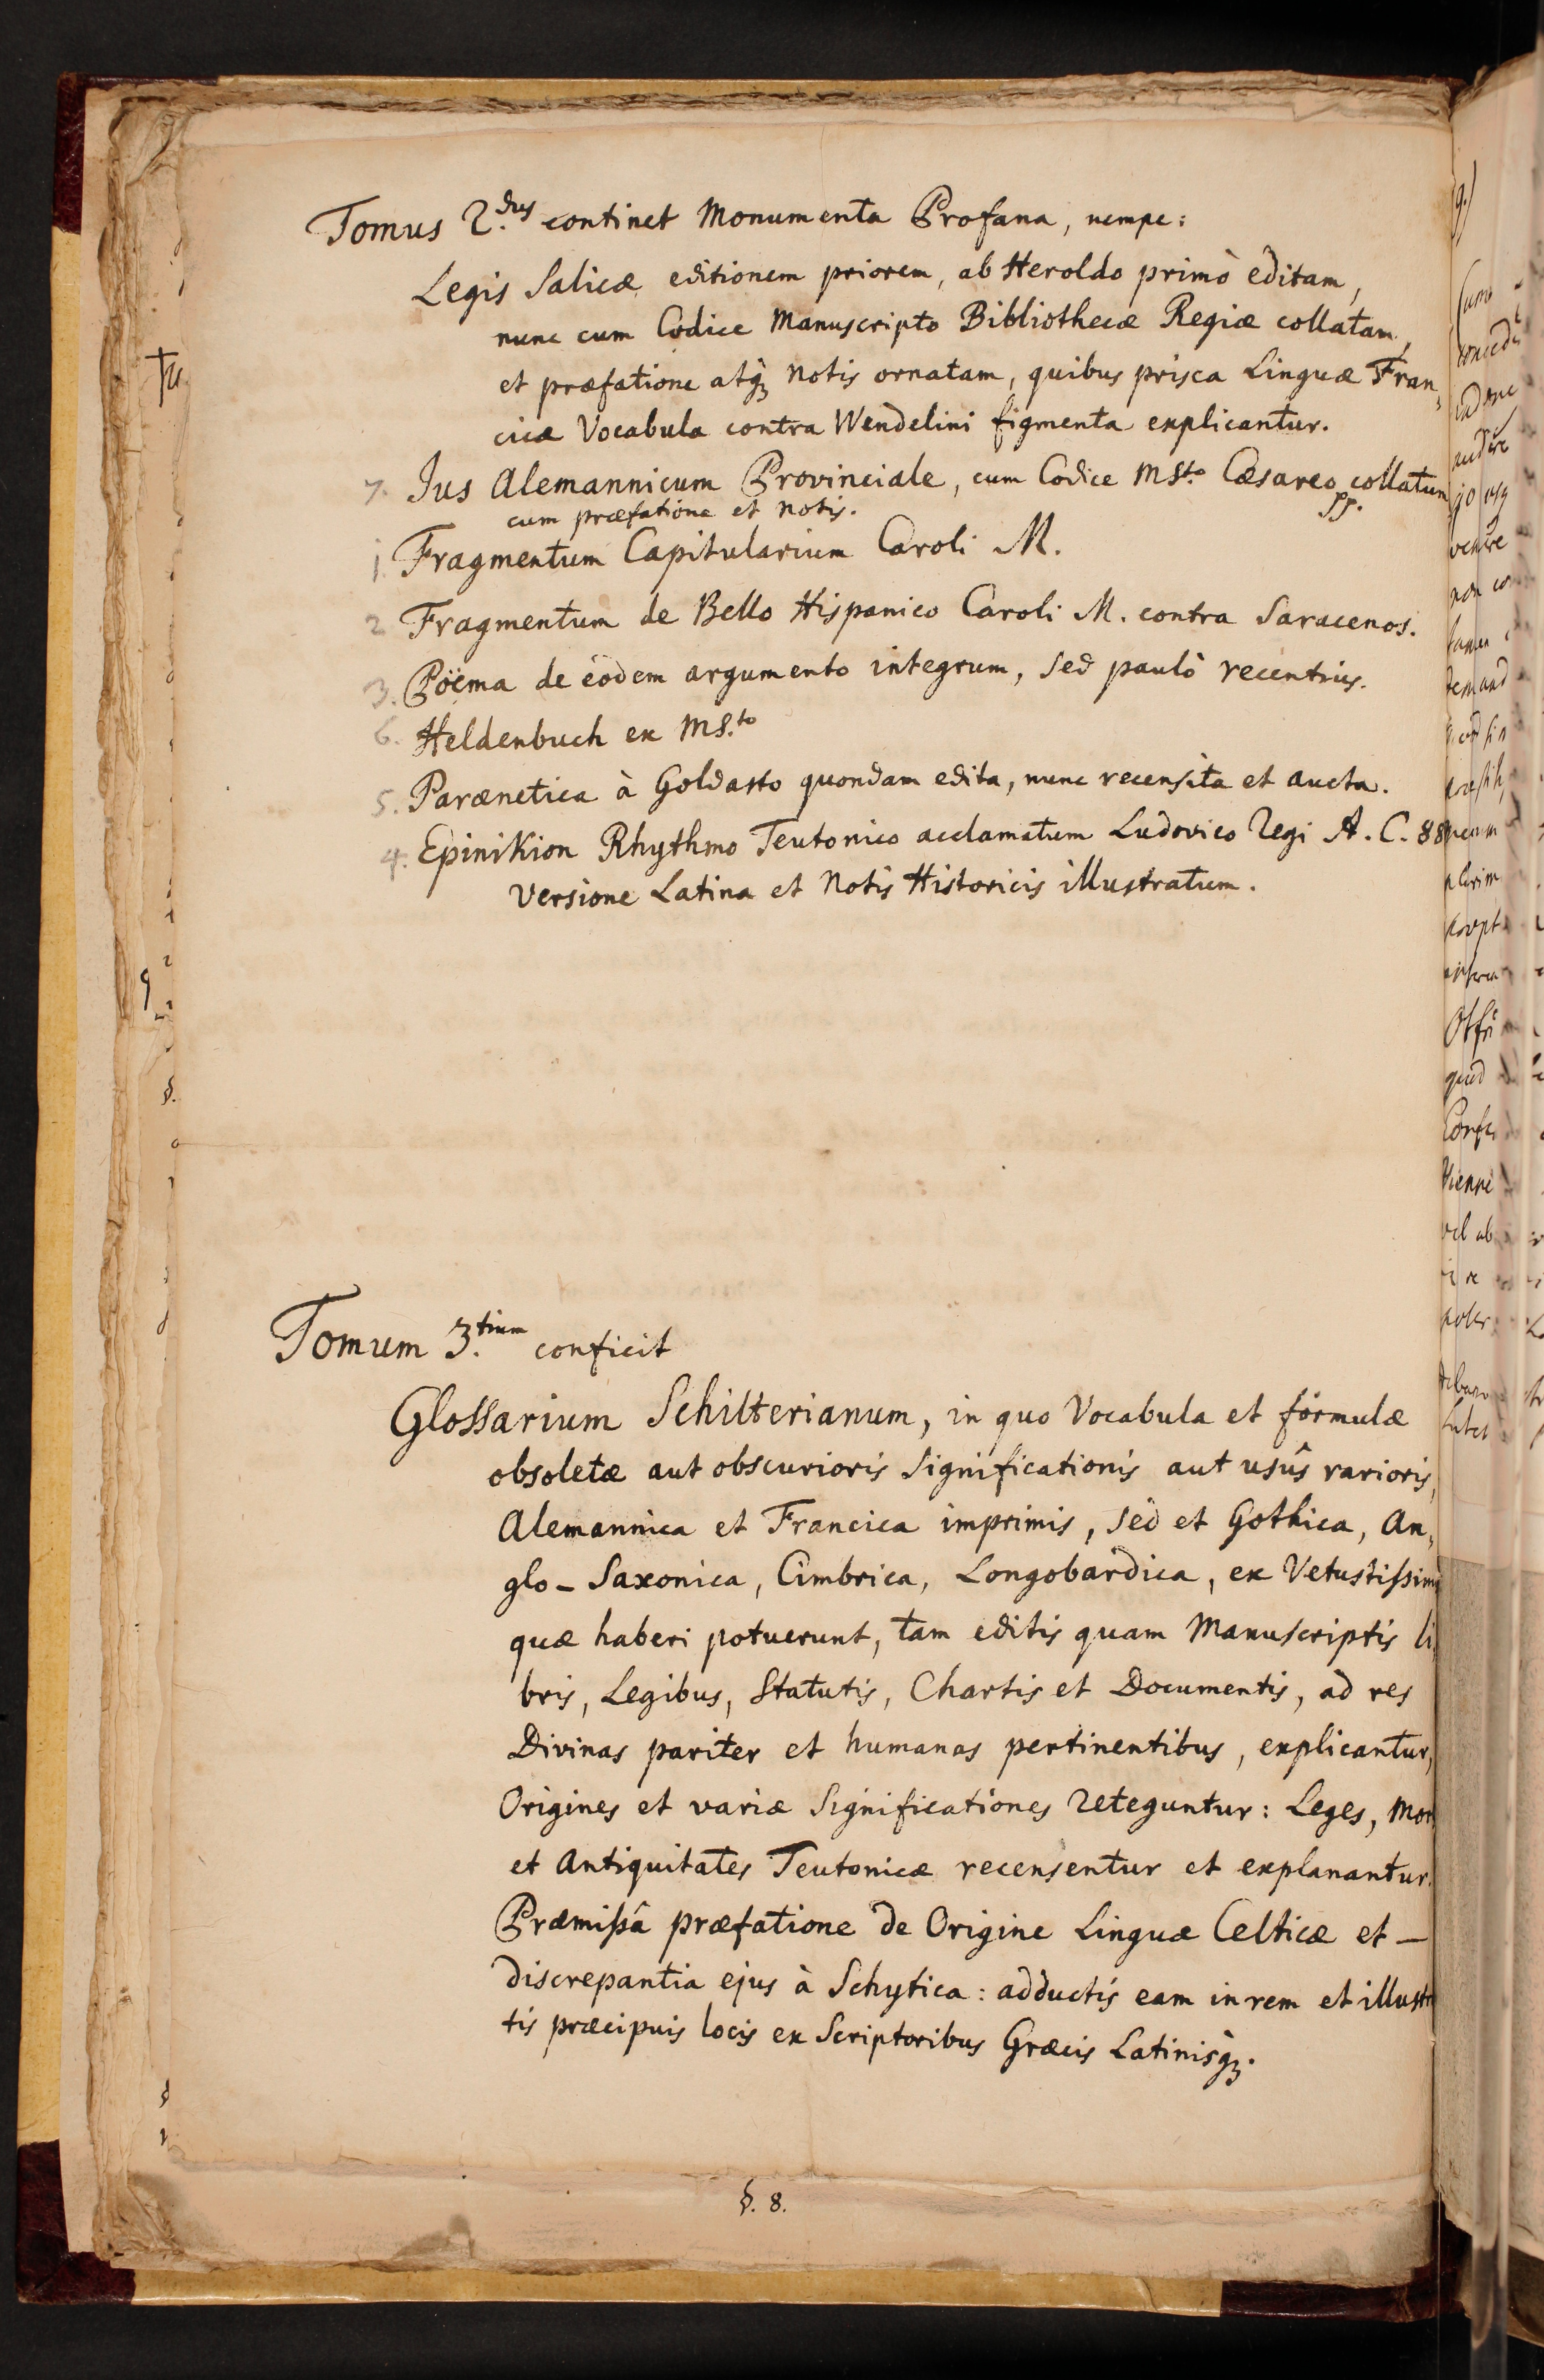 Tomus 2.dus continet Monumenta Profana, nempe:
Legis Salicæ editionem priorem, ab Heroldo primò editam,
nunc cum Codice Manuscripto Bibliothecæ Regiæ collatam,
et præfatione atq́3 Notis ornatam, quibus prisca Linguæ Fran„
cicæ Vocabula contra Wendelini figmenta explicantur.
7. Jus Alemannicum Provinciale, cum Codice MSto. Cæsareo collatum
cum præfatione et Notis.
1. Fragmentum Capitularium Caroli M.
2 Fragmentum de Bello Hispanico Caroli M. contra Saracenos.
3. Pöema de eodem argumento integrum, sed paulò recentius.
6. Heldenbuch ex MS.to
5. Parænetica à Goldasto quondam edita, nunc recensita et aucta.
4. Epinikion Rhythmo Teutonico acclamatum Ludovico Regi A. C. 88
Versione Latina et Notis Historicis illustratum.
Tomum 3.tium conficit
Glossarium Schilterianum, in quo Vocabula et formulæ
obsoletæ aut obscurioris Significationis aut usûs rarioris,
Alemannica et Francica imprimis, sed et Gothica, An„
glo-Saxonica, Cimbrica, Longobardica, ex Vetustissimi
quæ haberi potuerunt, tam editis quam Manuscriptis li
bris, Legibus, Statutis, Chartis et Documentis, ad res
Divinas pariter et humanas pertinentibus, explicantur,
Origines et variæ Significationes reteguntur: Leges, Mor
et Antiquitates Teutonicæ recensentur et explanantur.
Præmissâ præfatione de Origine Linguæ Celticæ et –
discrepantia ejus à Schytica: adductis eam in rem et illustr
tis præcipuis locis ex Scriptoribus Græcis Latinisq́3.
§. 8.